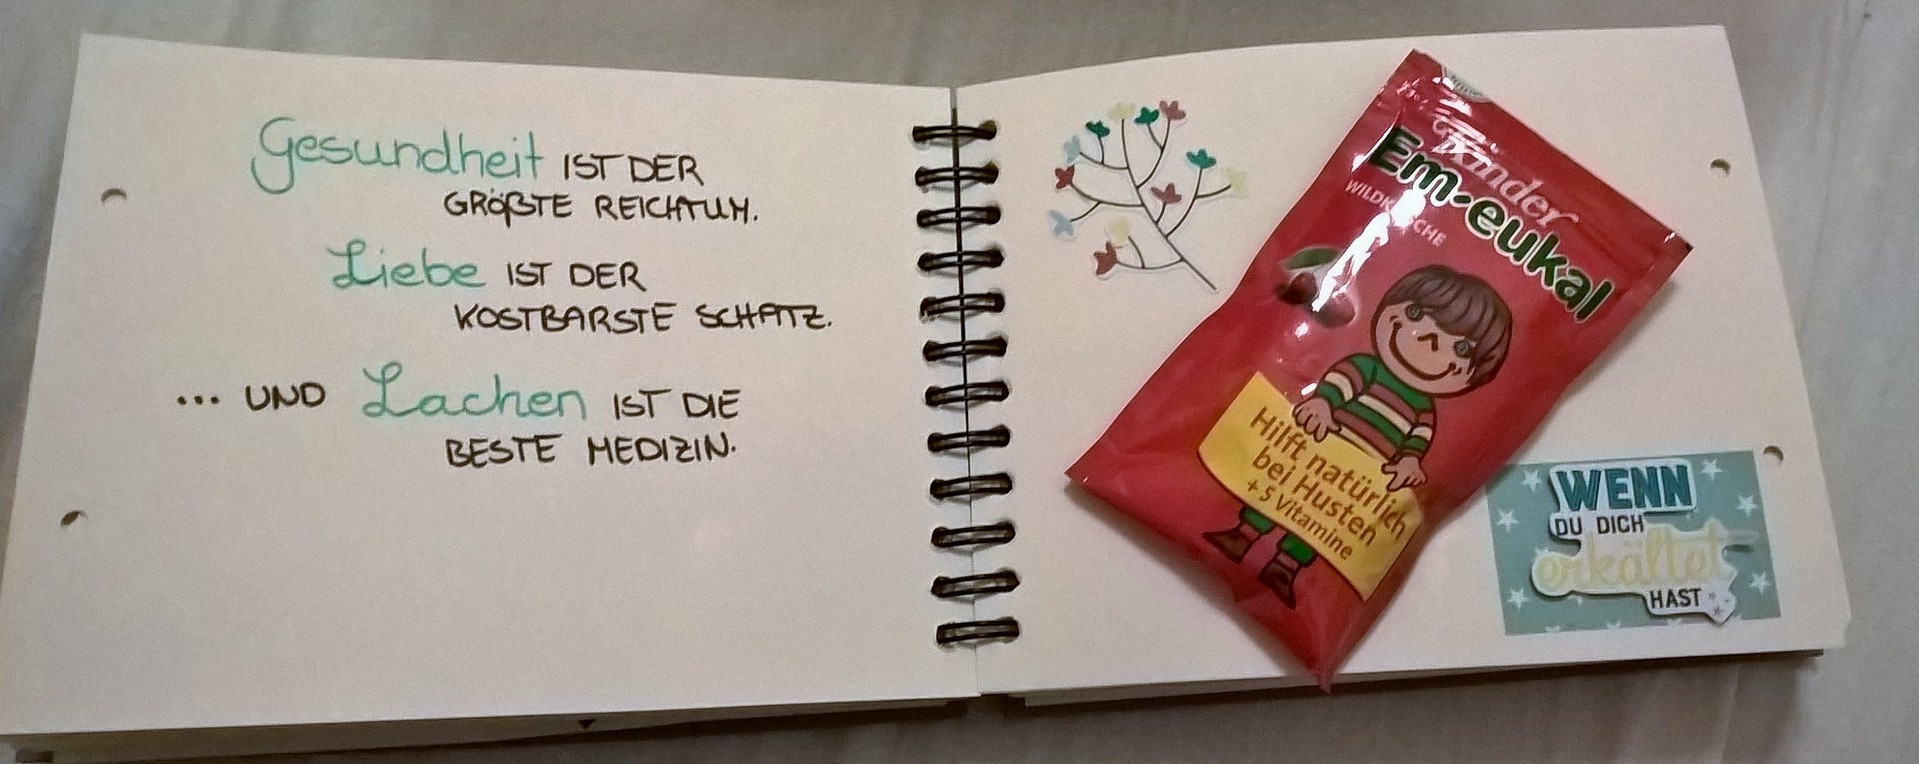 Gesundheit IST DER
GRÖßTE REICHTUM.
Liebe IST DER
KOSTBARSTE SCHATZ.
... UND Lachen IST DIE
BESTE MEDIZIN.
Kinder
Em-eukal
WILDKIRSCHE
Hilft natürlich
bei Husten
+ 5 Vitamine
WENN
DU DICH
erkältet
HAST